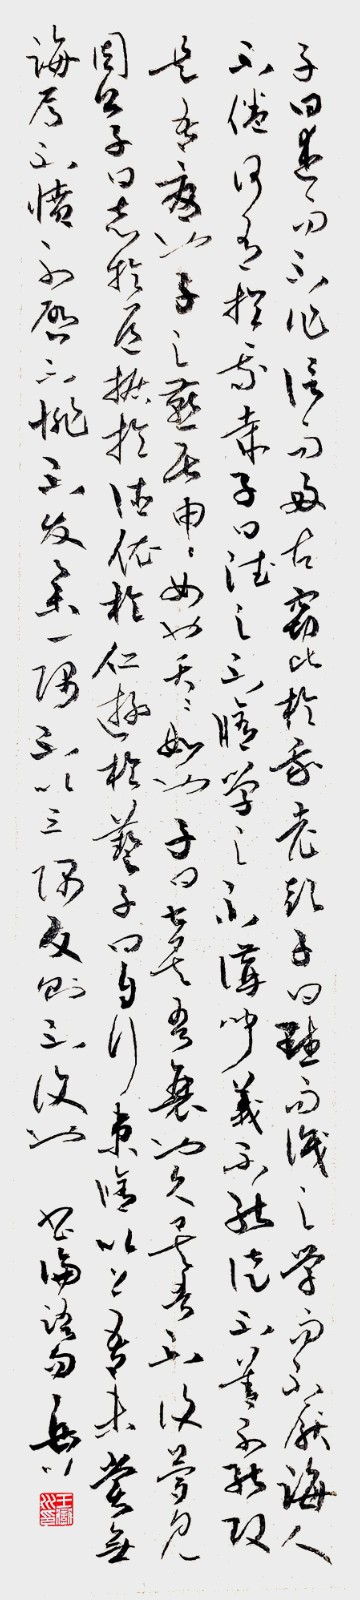 子曰述而不作信而好古竊比於我老彭子曰默而識之學而不厭誨人
不倦何有於我哉子曰德之不脩學之不講聞義不能徙不善不能改
是吾憂也子之燕居申申如也夭夭如也子曰甚矣吾衰也久矣吾不復夢見
周公子曰志於道據於德依於仁遊於藝子曰自行束脩以上吾未嘗無
誨焉不憤不啟不悱不發舉一隅不以三隅反則不復也 書論語句 岳川
王岳川印